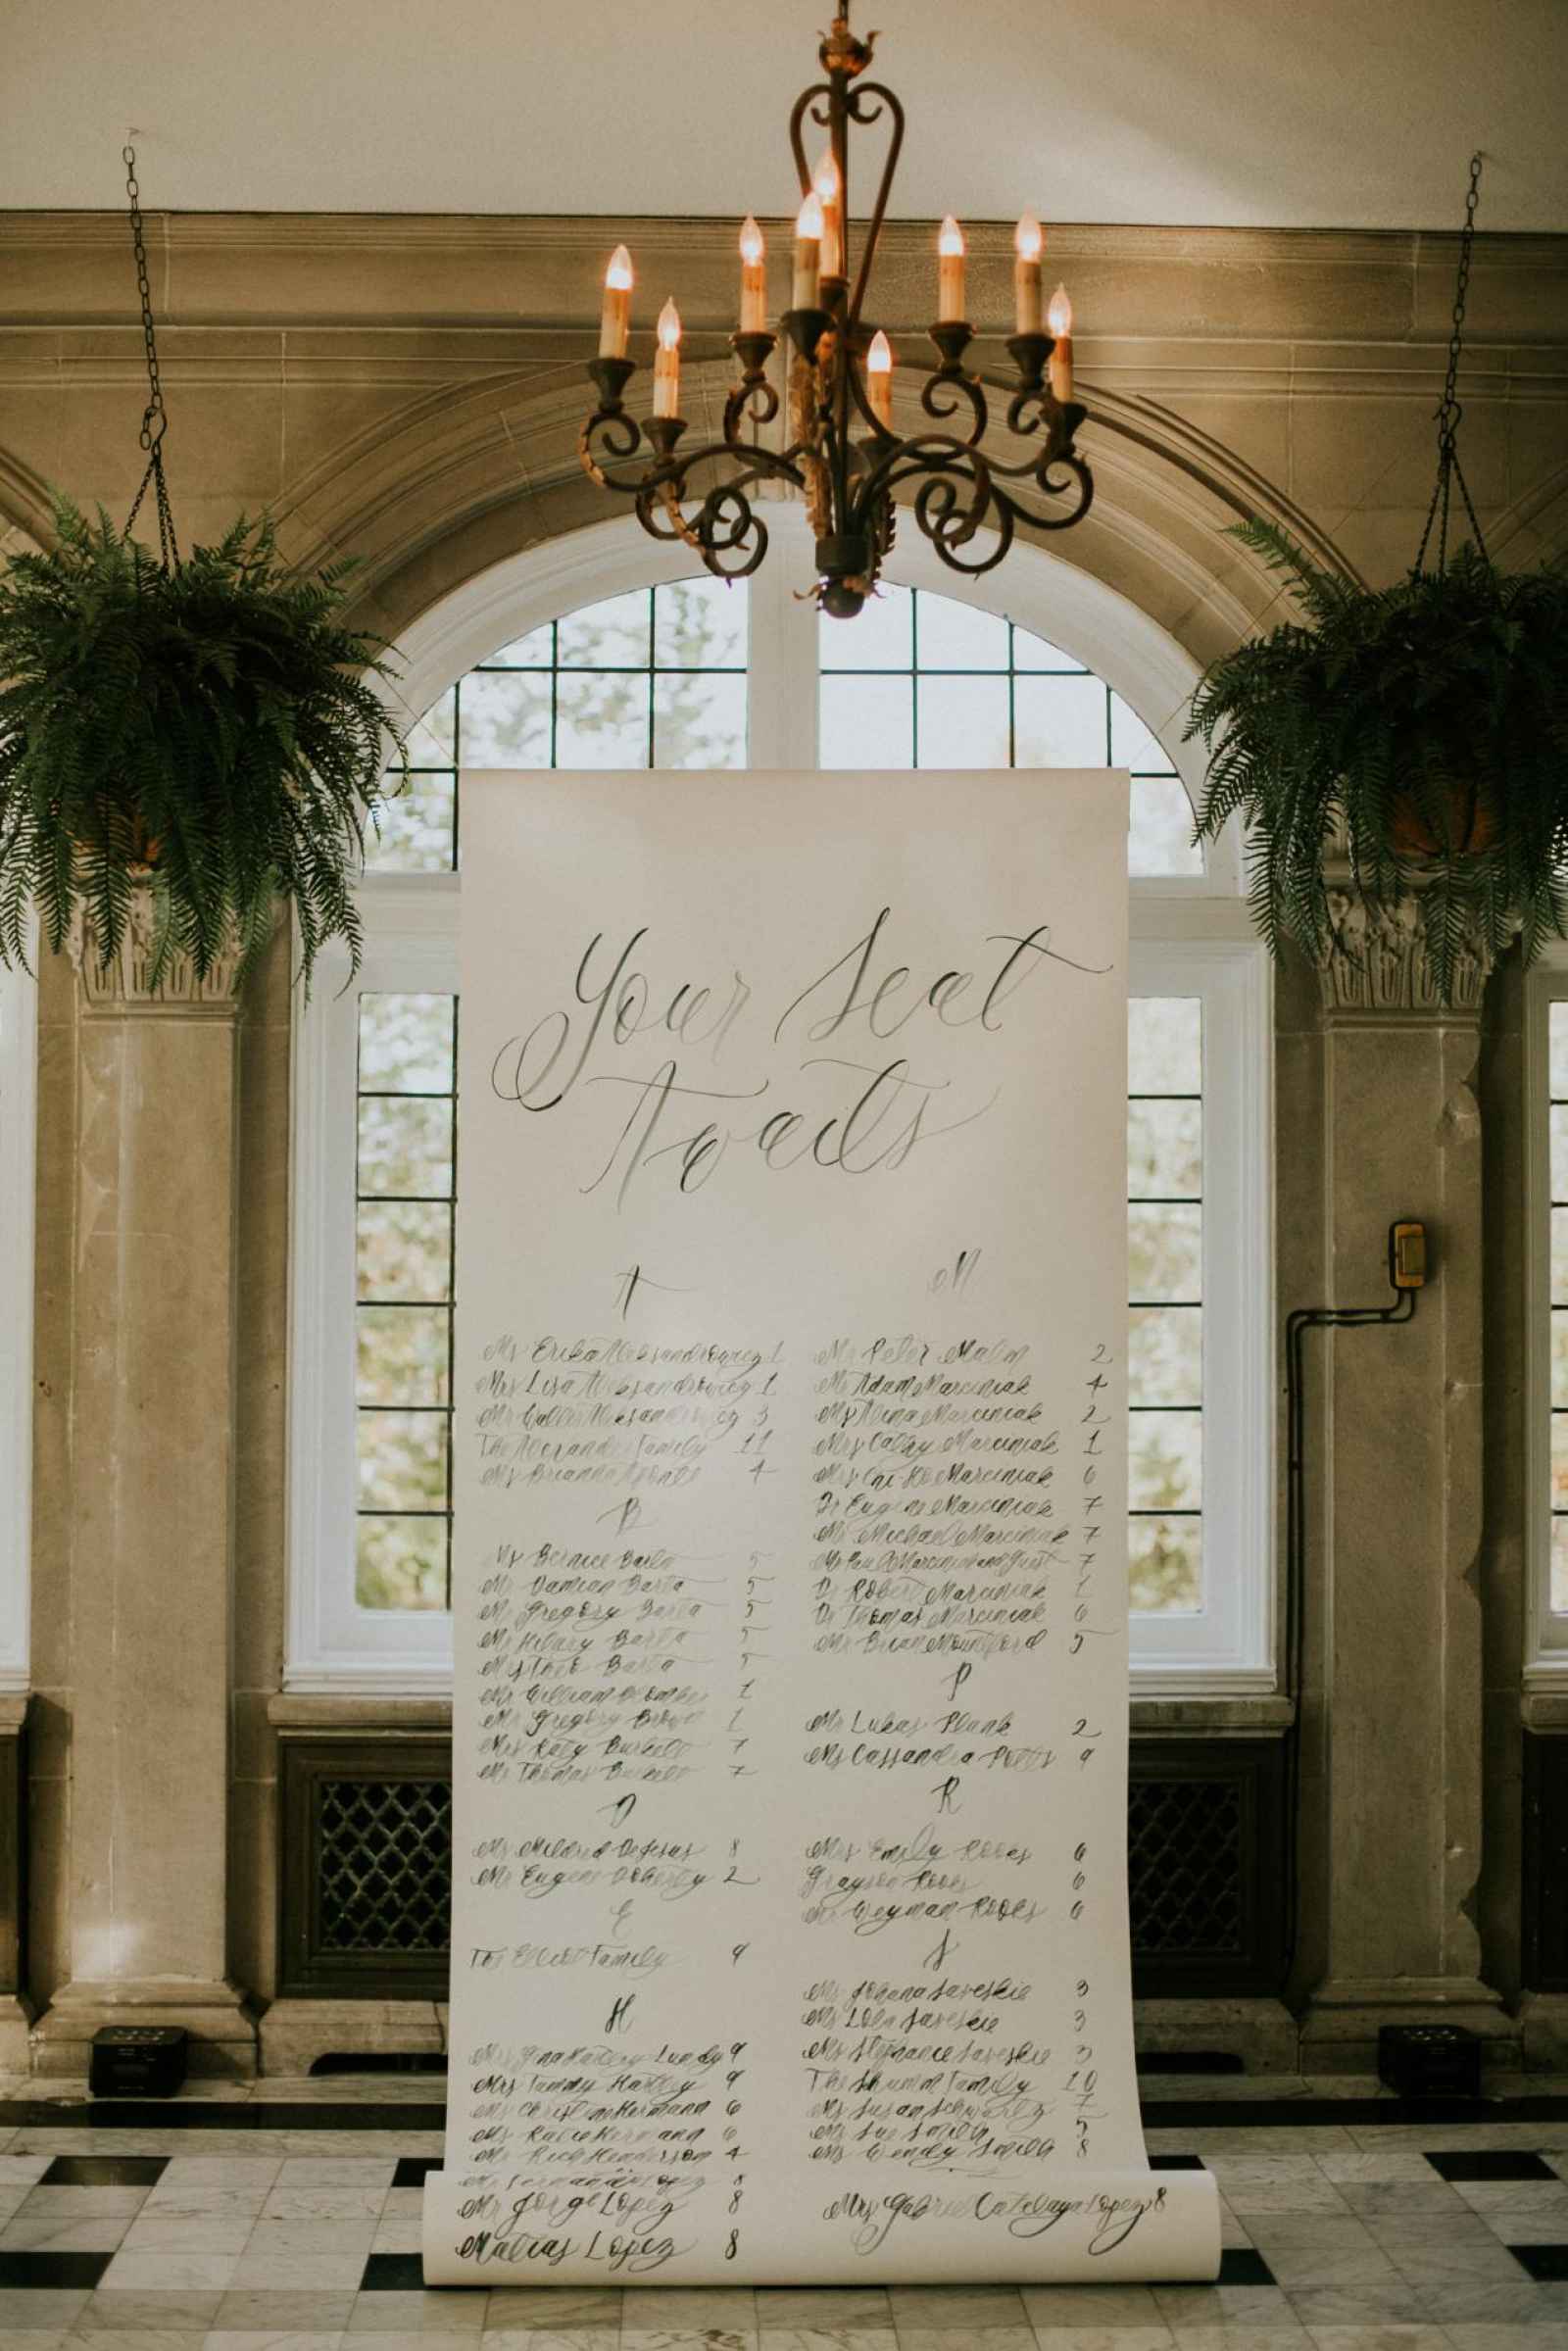 Your Seat
Awaits
A
Ms Erika Aleksandrowicz 1
Mrs Lisa Aleksandrowicz 1
Mr Aleksandrowicz 3
The Family 11
Ms Brianna 4
B
Ms Bernice Barta 5
Mr Damian Barta 5
Mr Gregory Barta 5
Mr Hilary Barta 5
Mrs Barta 5
Mr William 1
Mr Gregory Brown 1
Mrs Katy Burkett 7
Mr Thomas Burkett 7
D
Ms Mildred DeJesus 8
Mr Eugene Doherty 2
E
The Elliott Family 9
H
Mrs Gina Hartley-Lundy 9
Mrs Tammy Hartley 9
Ms Hermann 6
Ms Katie Hermann 6
Mr Rich Henderson 4
Lopez 8
Mr Jorge Lopez 8
Matias Lopez 8
M
Mr Peter Malin 2
Mr Adam Marciniak 4
Ms Alina Marciniak 2
Mrs Cathy Marciniak 1
Marciniak 6
Dr Eugene Marciniak 7
Mr Michael Marciniak 7
Mr Paul Marciniak and Guest 7
Dr Robert Marciniak 1
Dr Thomas Marciniak 6
Mr Brian Mountford 5
P
Mr Lukas Plank 2
Ms Cassandra Potts 9
R
Mrs Emily Rooks 6
Grayson Rooks 6
Mr Weyman Rooks 6
S
Ms Johana Saveskie 3
Ms Lola Saveskie 3
Ms Stephanie Saveskie 3
The Shumm Family 10
Ms Susan Schwartz 7
Ms Sue Smith 5
Ms Wendy Smith 8
Mrs Lopez 8